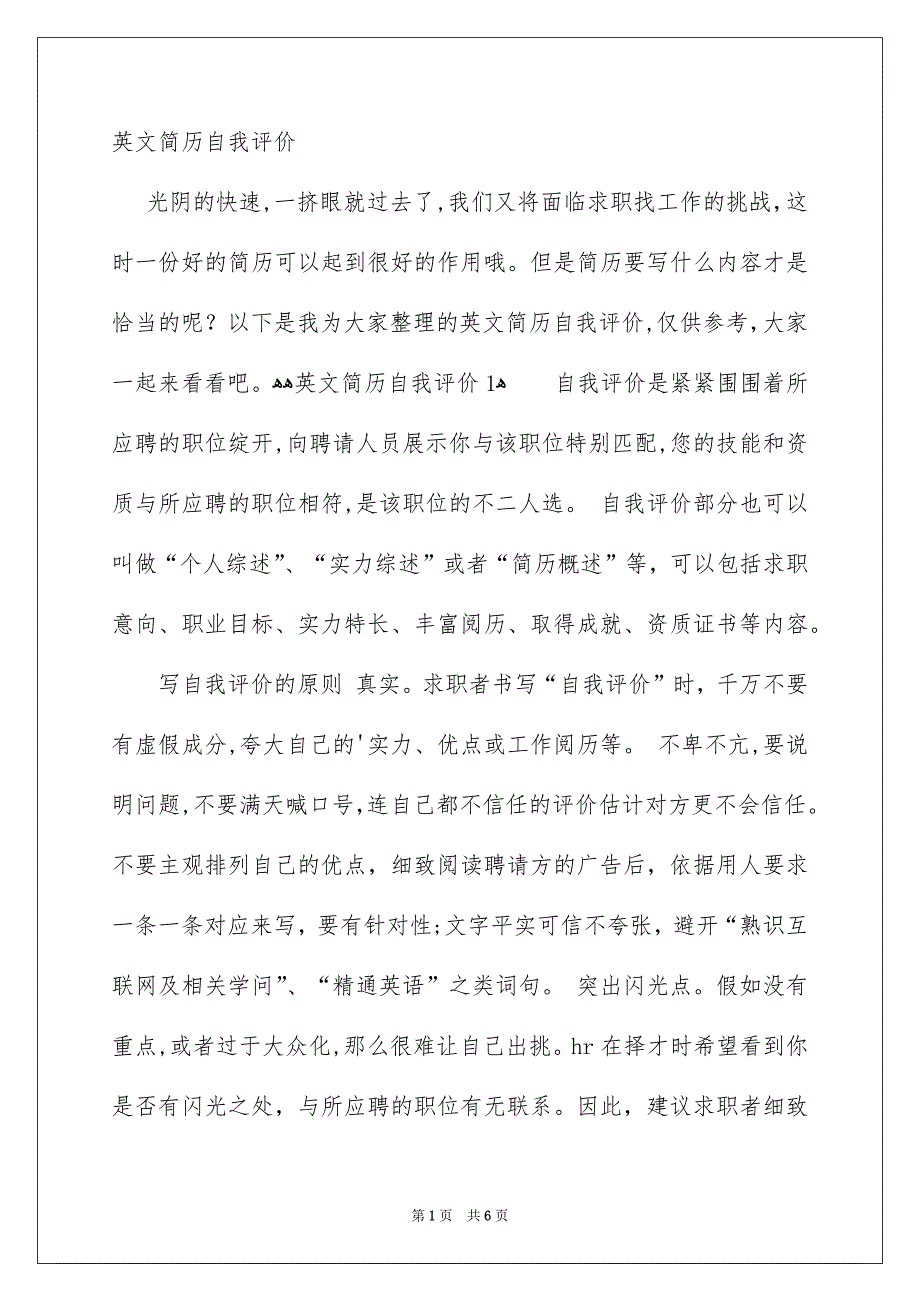 英文简历自我评价
光阴的快速,一挤眼就过去了,我们又将面临求职找工作的挑战,这
时一份好的简历可以起到很好的作用哦。但是简历要写什么内容才是
恰当的呢？以下是我为大家整理的英文简历自我评价,仅供参考,大家
一起来看看吧。ﻫﻫ英文简历自我评价1ﻫ 自我评价是紧紧围围着所
应聘的职位绽开,向聘请人员展示你与该职位特别匹配,您的技能和资
质与所应聘的职位相符,是该职位的不二人选。 自我评价部分也可以
叫做“个人综述”、“实力综述”或者“简历概述”等，可以包括求职
意向、职业目标、实力特长、丰富阅历、取得成就、资质证书等内容。
写自我评价的原则 真实。求职者书写“自我评价”时，千万不要
有虚假成分,夸大自己的'实力、优点或工作阅历等。 不卑不亢,要说
明问题,不要满天喊口号,连自己都不信任的评价估计对方更不会信任。
不要主观排列自己的优点，细致阅读聘请方的广告后，依据用人要求
一条一条对应来写，要有针对性;文字平实可信不夸张，避开“熟识互
联网及相关学问”、“精通英语”之类词句。 突出闪光点。假如没有
重点,或者过于大众化,那么很难让自己出挑。hr在择才时希望看到你
是否有闪光之处，与所应聘的职位有无联系。因此，建议求职者细致
第1页 共6页